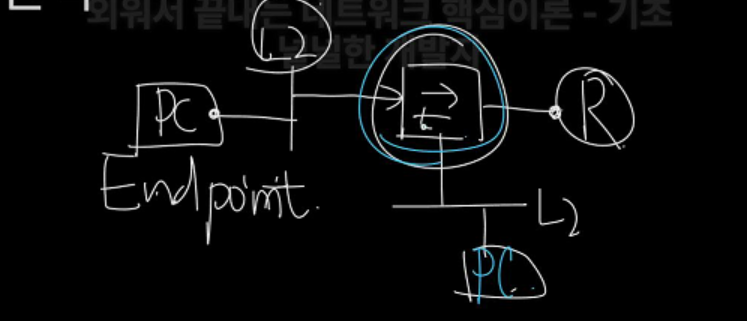 외워서 끝내는 네트워크 핵심이론 - 기초
널널한 개발자
L2
PC
R
Endpoint.
L2
PC